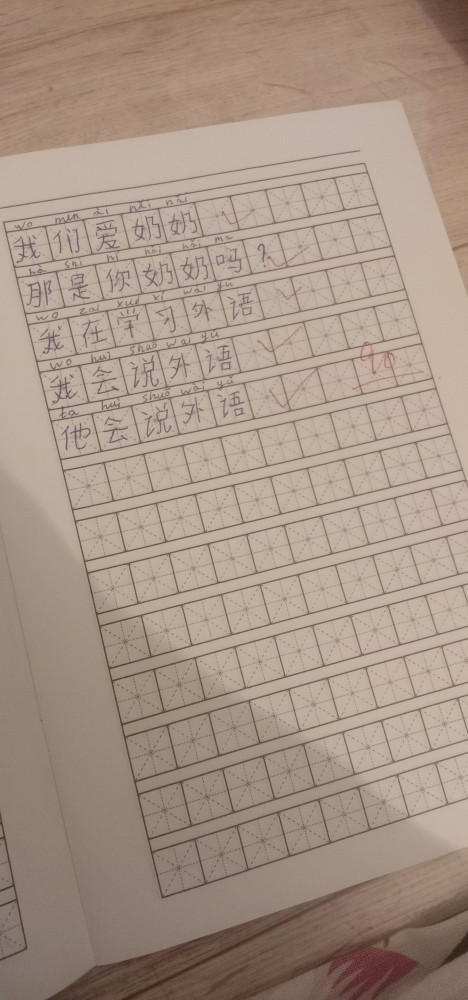 wo men ai nǎi nǎi
我们爱奶奶
na shi ni nǎi nǎi ma
那是你奶奶吗？
wo zai xue xi wai yu
我在学习外语
wo hui shuō wai yu
我会说外语
ta hui shuō wai yu
他会说外语